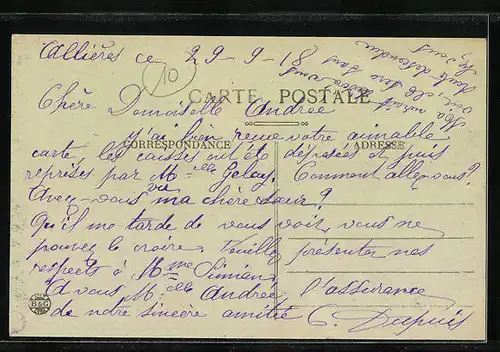 Allières ce 29-9-18
10
CARTE POSTALE
Chère Demoiselle Andrée
J'ai bien reçue votre aimable
CORRESPONDANCE
ADRESSE
carte, les caisses ont été déposées et puis
reprises par Mlle Gelay. Comment allez-vous?
Avez-vous vu ma chère sœur?
Qu'il me tarde de vous voir, vous ne
pouvez le croire. Veuillez présenter nos
respects à Mme Simian,
A vous Mlle Andrée, l'assurance
de notre sincère amitié C. Dupuis
B&G